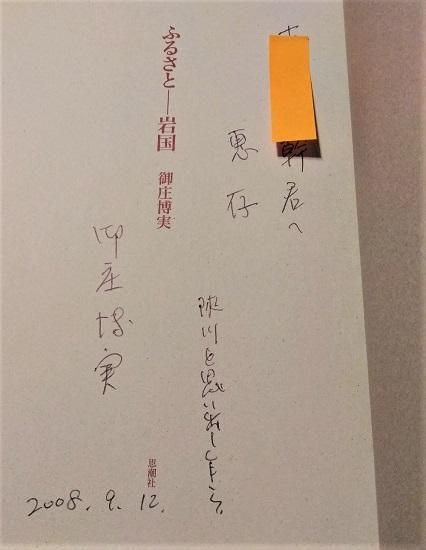 幹君へ
恵存
錦川を思い出しましょう。
ふるさと―岩国 御庄博実
思潮社
御庄博実
2008. 9. 12.